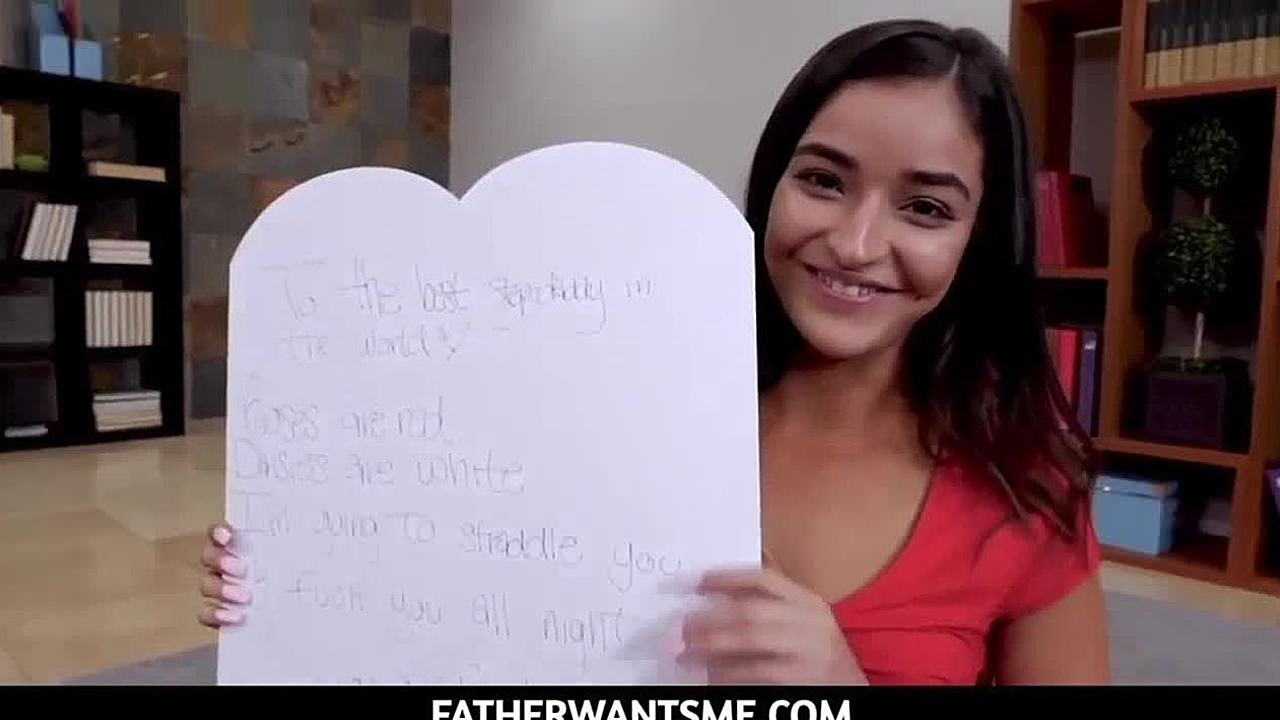 To the best stepdaddy in
the world!
Roses are red
Daisies are white
I'm going to straddle you
& fuck you all night
FATHERWANTSME.COM